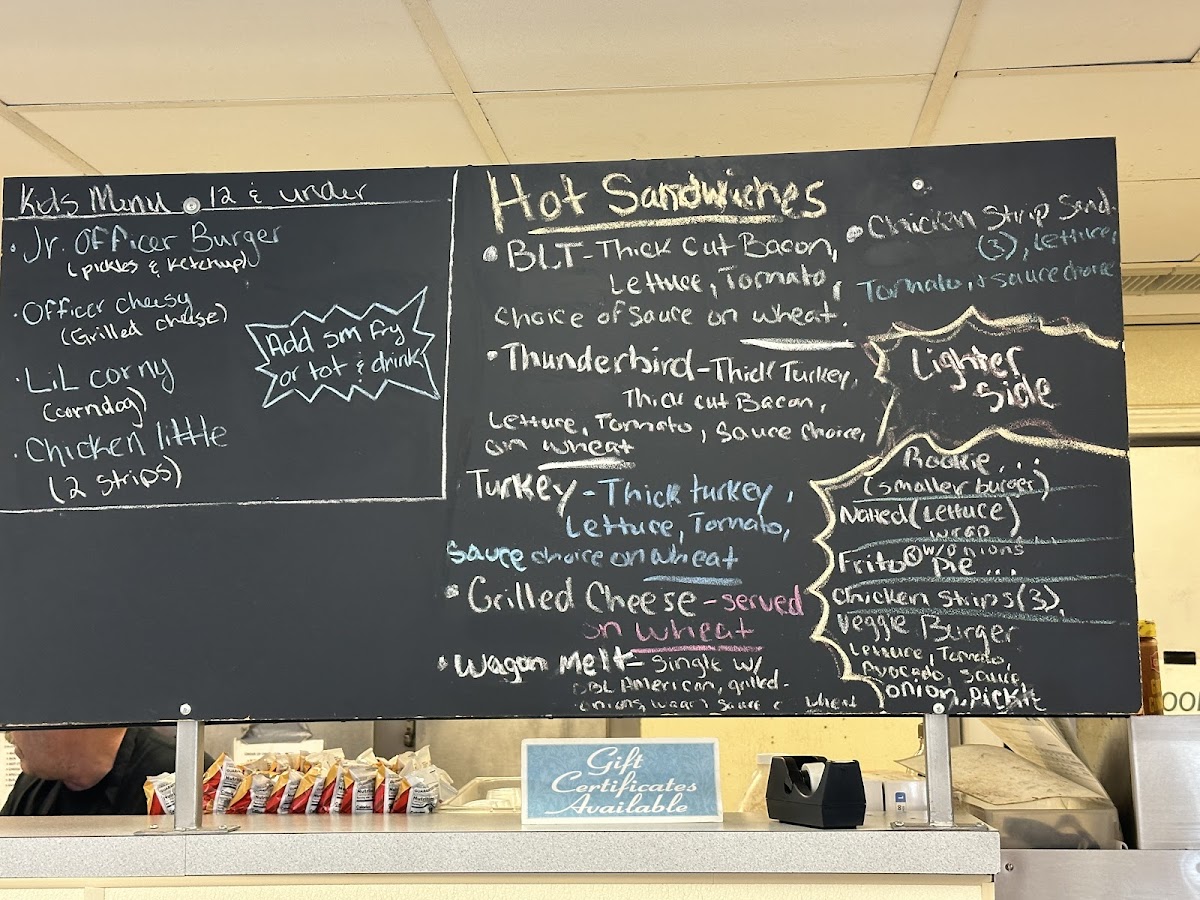 Kids Menu • 12 & under
• Jr. Officer Burger
(pickles & Ketchup)
• Officer cheesy
(Grilled cheese)
• LiL corny
(corndog)
• Chicken little
(2 strips)
Add sm fry
or tot & drink
Hot Sandwiches
• BLT - Thick Cut Bacon,
Lettuce, Tormato,
choice of sauce on wheat.
• Thunderbird - Thick Turkey,
Thick cut Bacon,
Lettuce, Tomato, sauce choice,
on wheat
Turkey - Thick turkey,
Lettuce, Tomato,
Sauce choice on wheat
• Grilled Cheese - served
on wheat
• Wagon Melt - Single w/
DBL American, grilled-
onions, wagn sauce wheat
• Chicken Strip Sand.
(3), Lettuce,
Tomato, + sauce choice
Lighter
Side
Rookie...
(smaller burger)
Naked (Lettuce)
wrap
Frito® w/onions
Pie...
Chicken strips (3),
Veggie Burger
Lettuce, Tomato,
Avocado, sauce,
onion, pickle
Gift
Certificates
Available